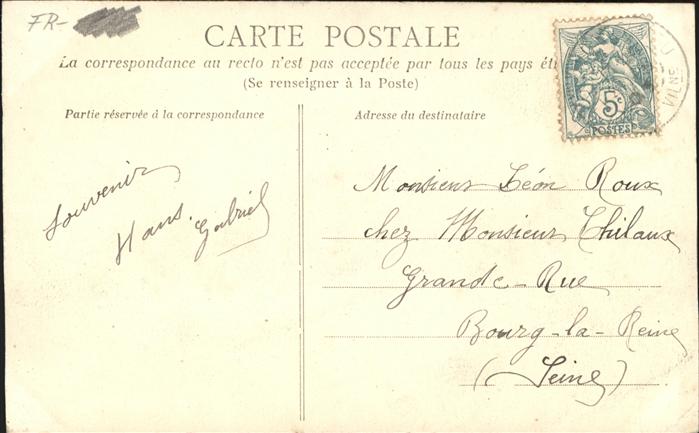 FR-
CARTE POSTALE
La correspondance au recto n'est pas acceptée par tous les pays ét
(Se renseigner à la Poste)
Partie réservée à la correspondance
Adresse du destinataire
5c
POSTES
VILNE
Souvenir
Hans. Gabriel
Monsieur Léon Roux
chez Monsieur Chilaux
Grande-Rue
Bourg-la-Reine
(Seine)